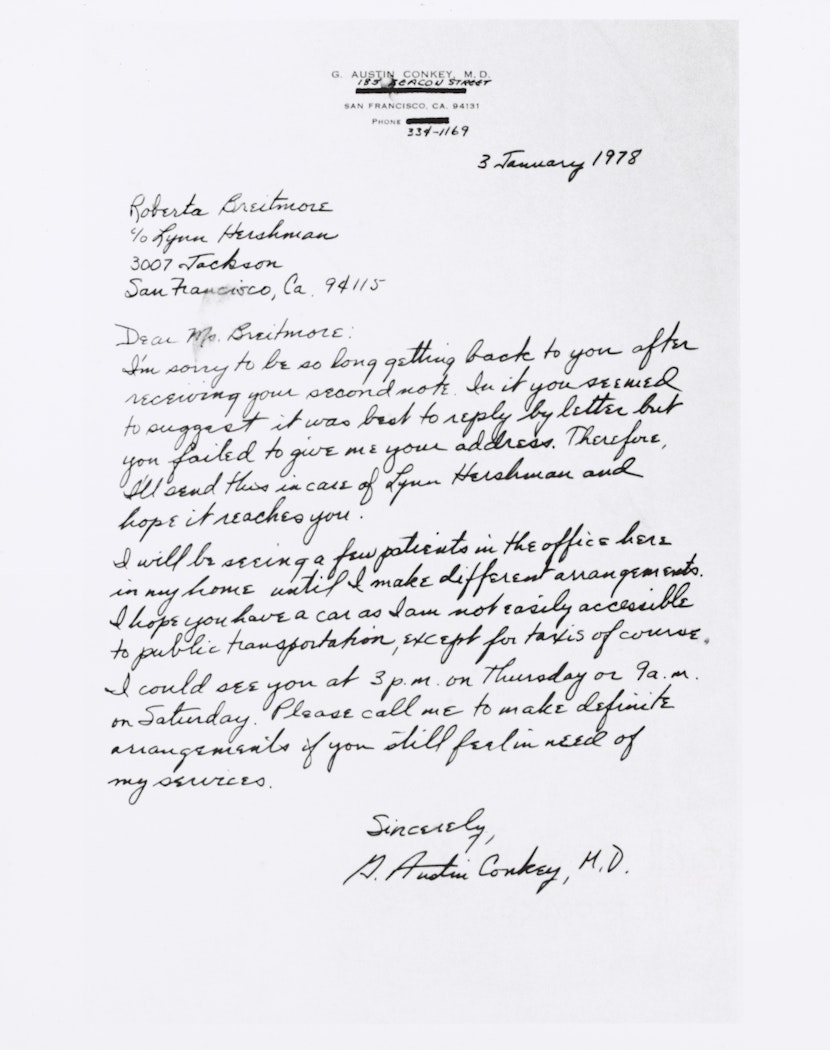 G. AUSTIN CONKEY, M.D.
185 BEACON STREET
SAN FRANCISCO, CA. 94131
PHONE
334-1169
3 January 1978
Roberta Breitmore
c/o Lynn Hershman
3007 Jackson
San Francisco, Ca. 94115
Dear Ms. Breitmore:
I'm sorry to be so long getting back to you after
receiving your second note. In it you seemed
to suggest it was best to reply by letter but
you failed to give me your address. Therefore,
I'll send this in care of Lynn Hershman and
hope it reaches you.
I will be seeing a few patients in the office here
in my home until I make different arrangements.
I hope you have a car as I am not easily accessible
to public transportation, except for taxis of course.
I could see you at 3 p.m. on Thursday or 9 a.m.
on Saturday. Please call me to make definite
arrangements if you still feel in need of
my services.
Sincerely,
G. Austin Conkey, M.D.